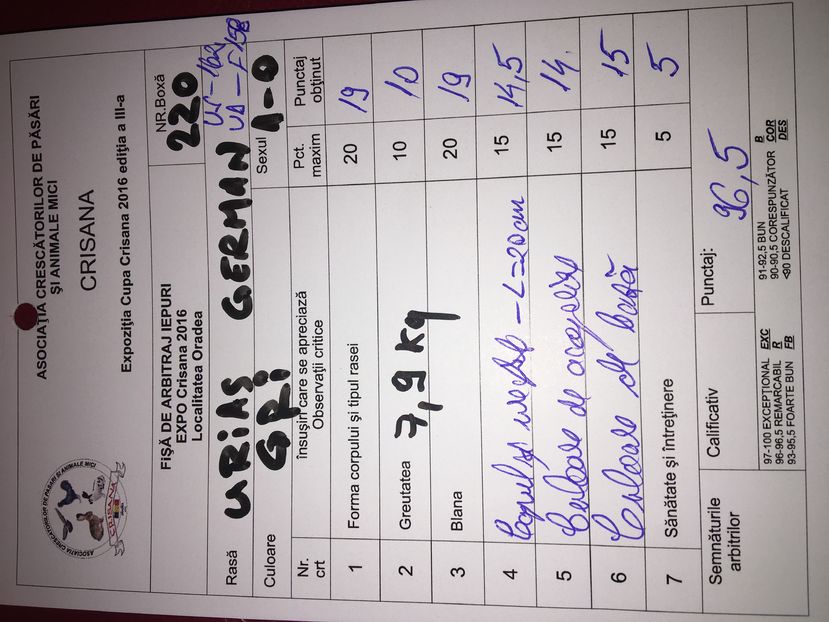 ASOCIAȚIA CRESCĂTORILOR DE PĂSĂRI
ȘI ANIMALE MICI
CRISANA
Expoziția Cupa Crisana 2016 ediția a III-a
ASOCIATIA CRESCATORILOR DE PASARI SI ANIMALE MICI
CRISANA
FIȘĂ DE ARBITRAJ IEPURI
EXPO Crisana 2016
Localitatea Oradea
NR.Boxă
220
Rasă URIAȘ GERMAN
Culoare GRI Sexul 1-0
Nr. crt însușiri care se apreciază Observații critice Pct. maxim Punctaj obținut
1 Forma corpului și tipul rasei 20 19
2 Greutatea 7,9 kg 10 10
3 Blana 20 19
4 Capul și urechile - L=20cm 15 14,5
5 Culoare de acoperire 15 14.
6 Culoare de bază 15 15
7 Sănătate și întreținere 5 5
Semnăturile arbitrilor Calificativ Punctaj: 96,5
97-100 EXCEPȚIONAL EXC 91-92,5 BUN B
96-96,5 REMARCABIL R 90-90,5 CORESPUNZĂTOR COR
93-95,5 FOARTE BUN FB <90 DESCALIFICAT DES